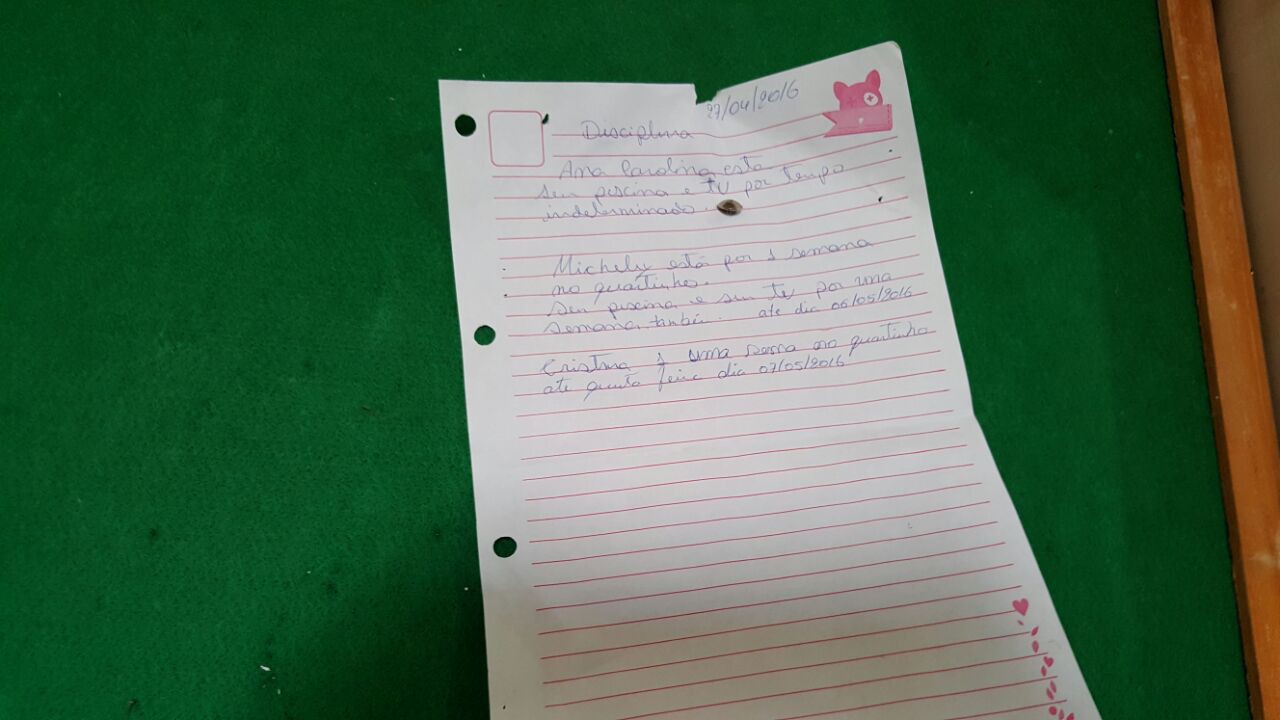 27/04/2016
Disciplina
Ana Carolina está
sem piscina e tv por tempo
indeterminado.
Michely está por 1 semana
no quartinho.
Sem piscina e sem tv por uma
semana também. até dia 06/05/2016
Cristina 1 uma no quartinho
até quinta feira dia 07/05/2016